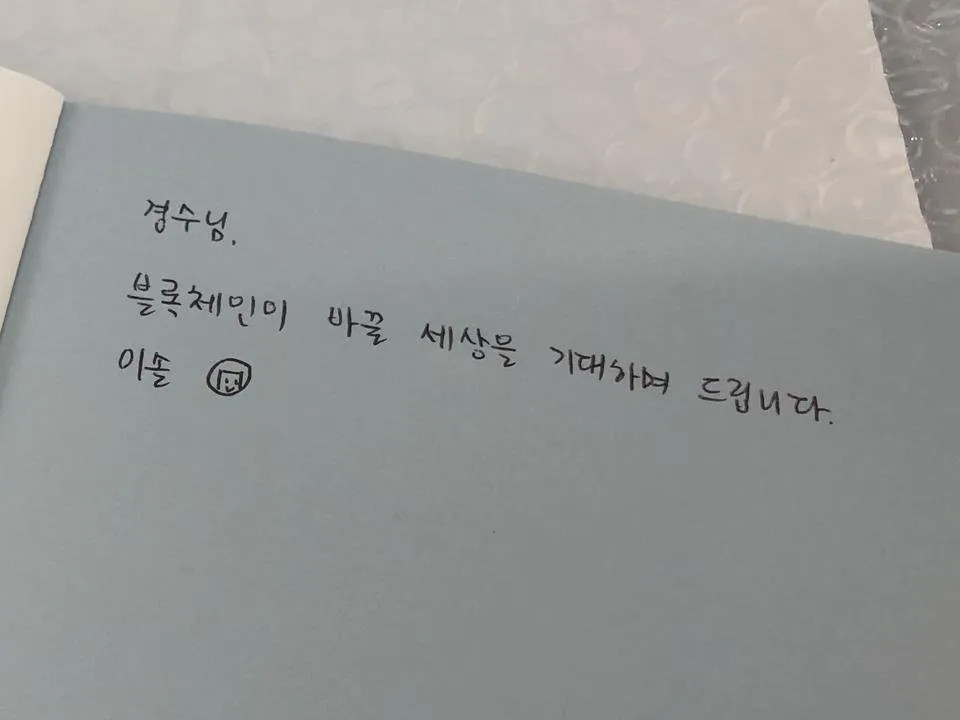 경수님.
블록체인이 바꿀 세상을 기대하며 드립니다.
이솔